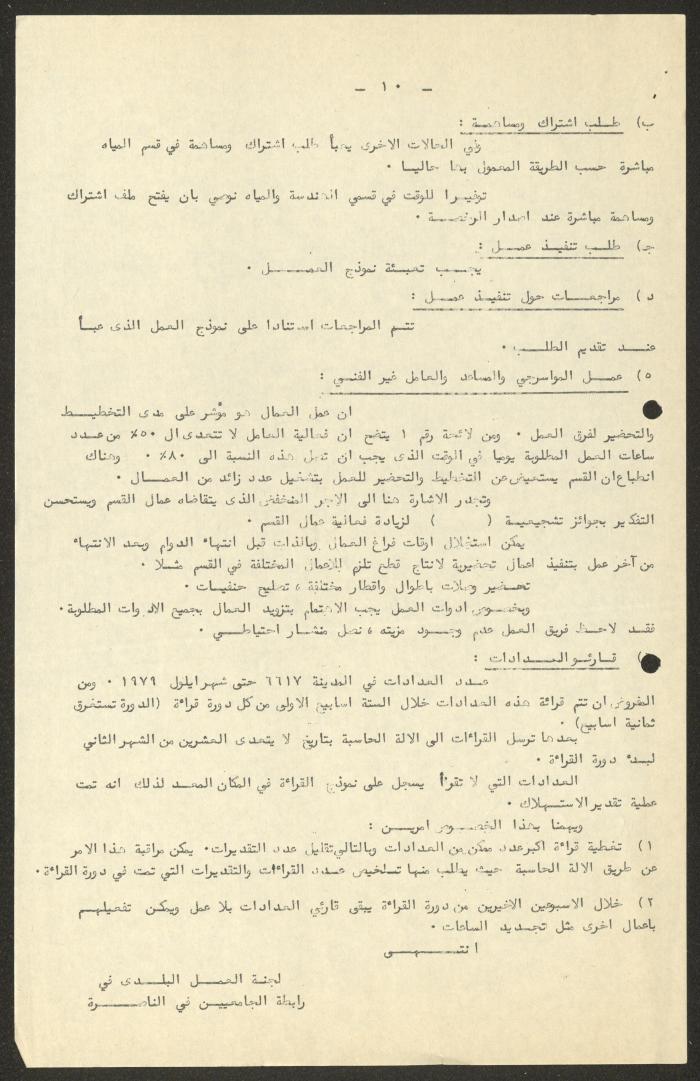 - ١٠ -
ب) طلب اشتراك ومساهمة :
وفي الحالات الاخرى يعبأ طلب اشتراك ومساهمة في قسم المياه
مباشرة حسب الطريقة المعمول بها حاليا .
توفيرا للوقت في قسمي الهندسة والمياه نوصي بان يفتح ملف اشتراك
ومساهمة مباشرة عند اصدار الرخصة .
جـ) طلب تنفيذ عمل :
يجب تعبئة نموذج العمل .
د) مراجعات حول تنفيذ عمل :
تتم المراجعات استنادا على نموذج العمل الذى عبأ
عند تقديم الطلب .
٥) عمل المواسرجي والمساعد والعامل غير الفني :
ان عمل العمال هو مؤشر على مدى التخطيط
والتحضير لفرق العمل . ومن لائحة رقم ١ يتضح ان فعالية العامل لا تتعدى ال ٥٠٪ من عدد
ساعات العمل المطلوبة يوميا في الوقت الذى يجب ان تصل هذه النسبة الى ٨٠٪ . وهناك
انطباع ان القسم يستعيض عن التخطيط والتحضير للعمل بتشغيل عدد زائد من العمال .
وتجدر الاشارة هنا الى الاجر المنخفض الذى يتقاضاه عمال القسم ويستحسن
التفكير بجوائز تشجيعية ( ) لزيادة فعالية عمال القسم .
يمكن استغلال اوقات فراغ العمال وبالذات قبل انتهاء الدوام وبعد الانتهاء
من آخر عمل بتنفيذ اعمال تحضيرية لانتاج قطع تلزم للاعمال المختلفة في القسم مثلا .
تحضير وصلات باطوال واقطار مختلفة ، تصليح حنفيات .
وبخصوص ادوات العمل يجب الاهتمام بتزويد العمال بجميع الادوات المطلوبة .
فقد لاحظ فريق العمل عدم وجود مزيته ، نصل منشار احتياطي .
) قارئو العدادات :
عدد العدادات في المدينة ٦٦١٧ حتى شهر ايلول ١٩٧٩ . ومن
المفروض ان تتم قرائة هذه العدادات خلال الستة اسابيع الاولى من كل دورة قراءة (الدورة تستغرق
ثمانية اسابيع) .
بعدها ترسل القراءات الى الالة الحاسبة بتاريخ لا يتعدى العشرين من الشهر الثاني
لبدء دورة القراءة .
العدادات التي لا تقرأ يسجل على نموذج القراءة في المكان المعد لذلك انه تمت
عملية تقدير الاستهلاك .
ويهمنا بهذا الخصوص امرين :
١) تغطية قراءة اكبر عدد ممكن من العدادات وبالتالي تقليل عدد التقديرات . يمكن مراقبة هذا الامر
عن طريق الالة الحاسبة حيث يطلب منها تلخيص عدد القراءات والتقديرات التي تمت في دورة القراءة .
٢) خلال الاسبوعين الاخيرين من دورة القراءة يبقى قارئي العدادات بلا عمل ويمكن تفعيلهم
باعمال اخرى مثل تجديد الساعات .
انتهى
لجنة العمل البلدى في
رابطة الجامعيين في الناصرة